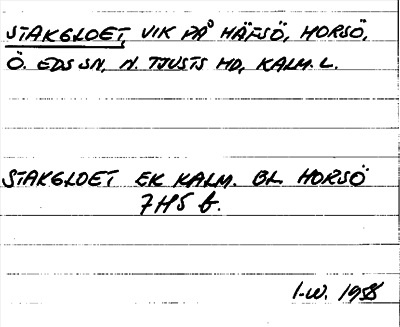 STAKGLOET, VIK PÅ HÄFSÖ, HORSÖ,
Ö. EDS SN, N. TJUSTS HD, KALM. L.
STAKGLOET EK KALM. BL HORSÖ
7H5 b.
I-W. 1958